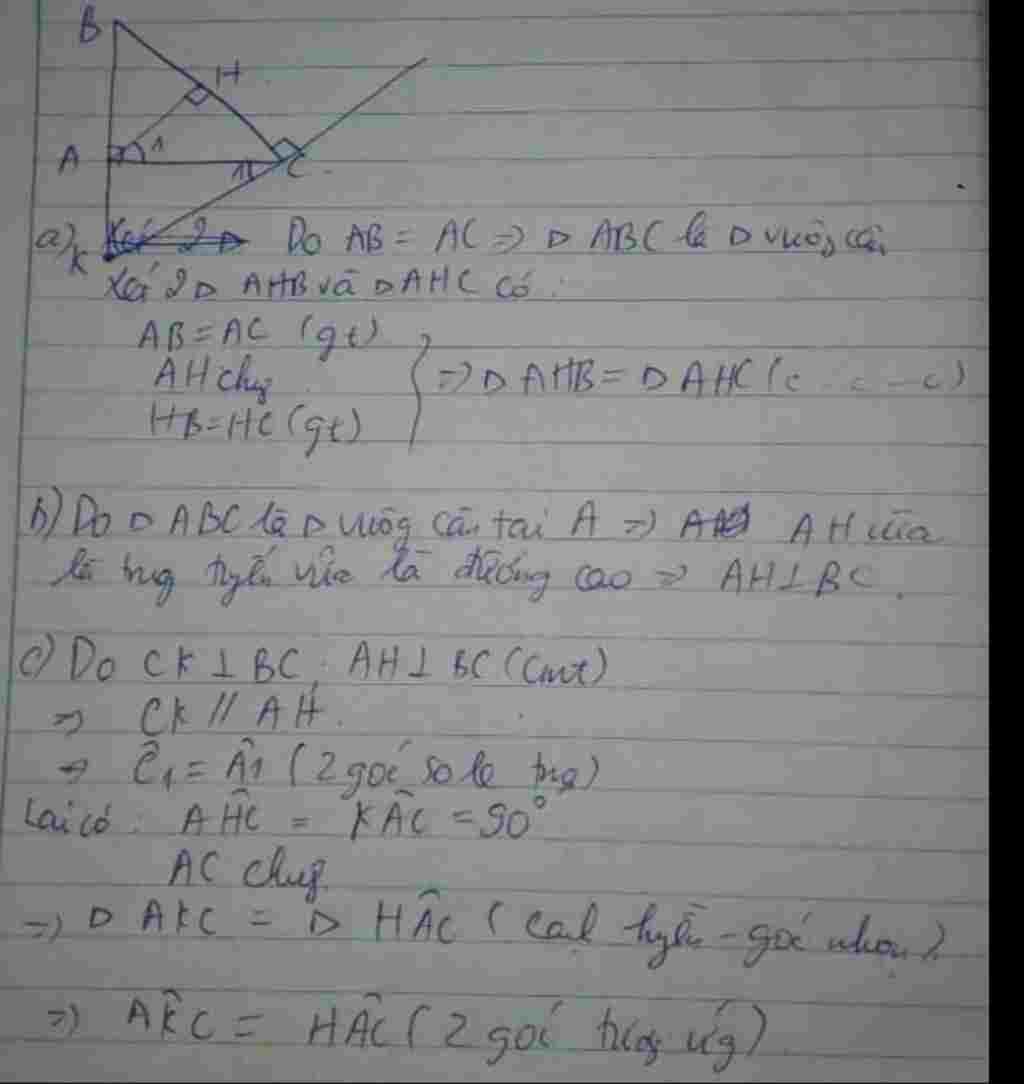 B
H
A 1
1 C
a) K Xét 2 D Do AB = AC => D ABC là D vuông cân
Xét 2 D AHB và D AHC có :
AB = AC (gt)
AH chug => D AHB = D AHC (c - c - c)
HB = HC (gt)
b) Do D ABC là D vuôg cân tại A => AH vừa
là trug tuyến vừa là đường cao => AH ⊥ BC.
c) Do CK ⊥ BC ; AH ⊥ BC (cmt)
=> CK // AH.
=> Ĉ1 = Â1 (2 goć so le trog)
Lại có : AĤC = KÂC = 90°
AC chug
=> D AKC = D HÂC (cạnh huyền - goć nhọn).
=> AK̂C = HÂC (2 goć tương ứg)